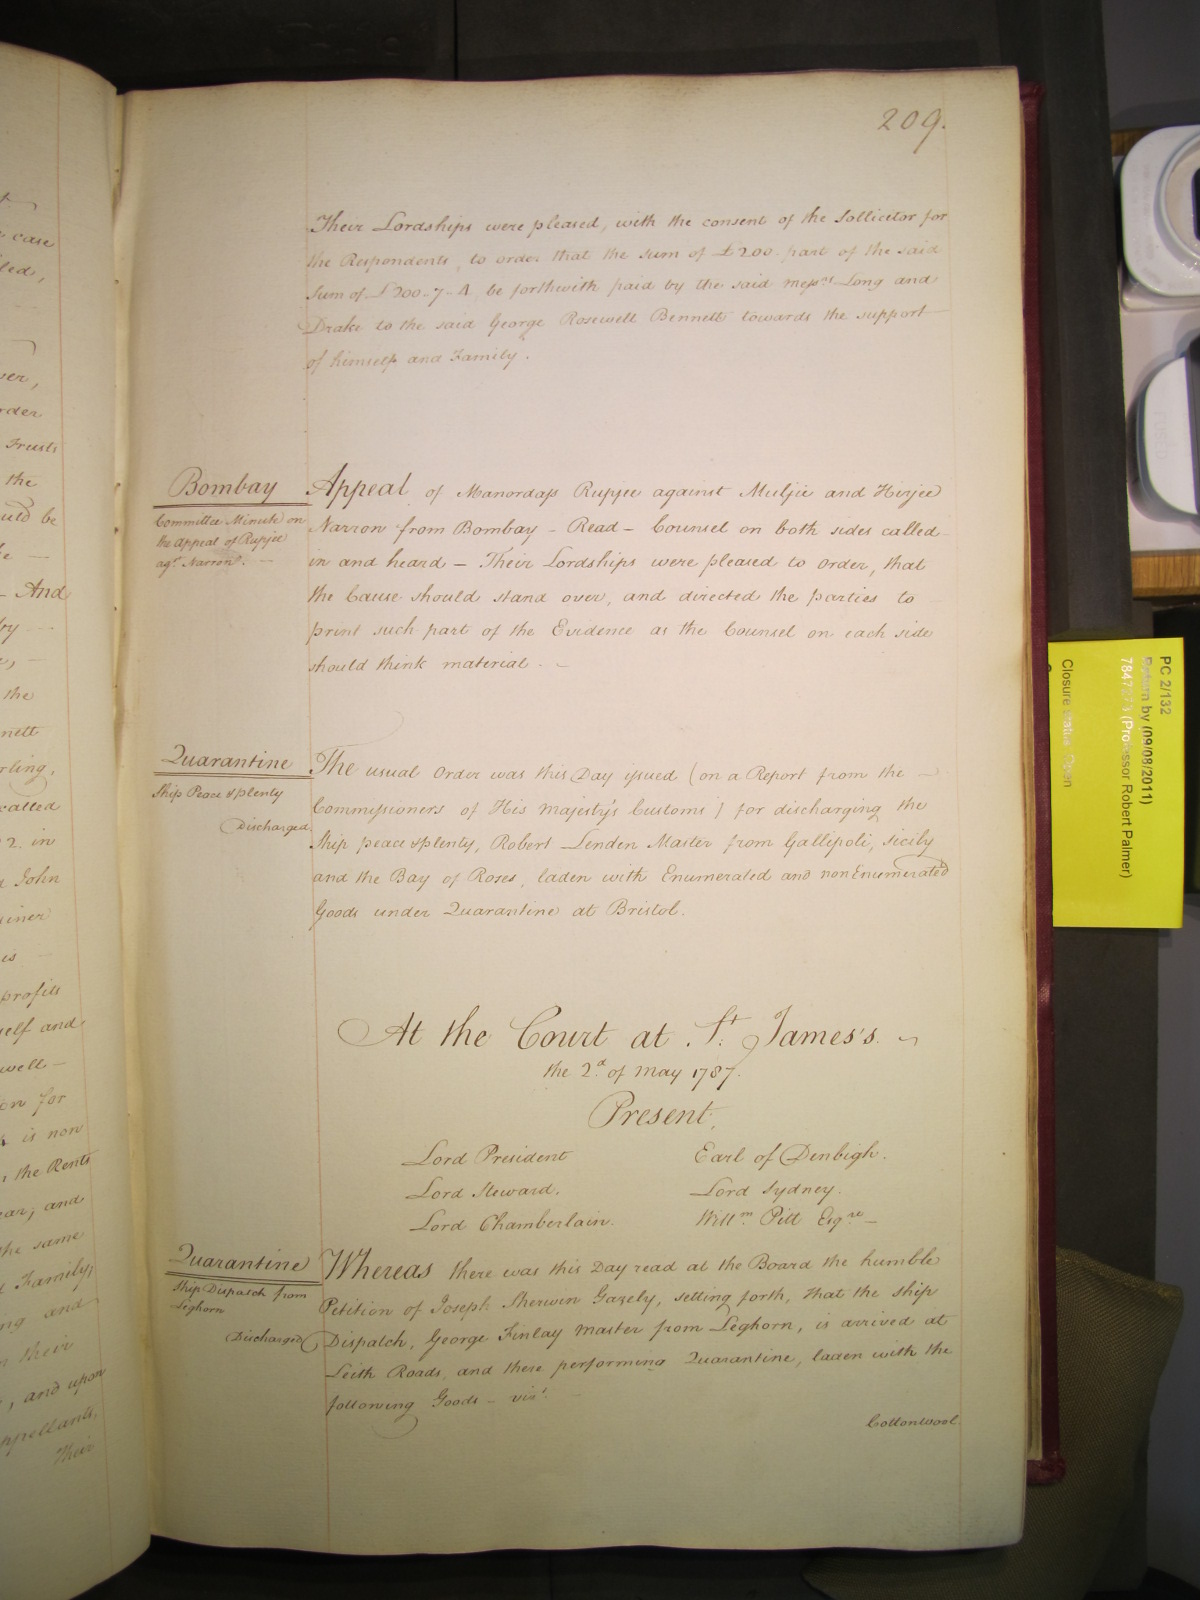 209.
Their Lordships were pleased, with the consent of the Sollicitor for
the Respondents, to order that the sum of £200. part of the said
Sum of £200-7-4, be forthwith paid by the said Messrs Long and
Drake to the said George Rosewell Bennett towards the support
of himself and Family.
Bombay
Committee Minute on
the Appeal of Rupjee
agt Narron.
Appeal of Manordass Rupjee against Muljee and Hirjee
Narron from Bombay - Read - Counsel on both sides called
in and heard - Their Lordships were pleased to order, that
the Cause should stand over, and directed the parties to
print such part of the Evidence as the Counsel on each side
should think material.
Quarantine
Ship Peace & plenty
Discharged.
The usual Order was this Day issued (on a Report from the
Commissioners of His Majesty's Customs) for discharging the
Ship peace & plenty, Robert Linden Master from Gallipoli, Sicily
and the Bay of Roses, laden with Enumerated and non Enumerated
Goods under Quarantine at Bristol.
At the Court at St. James's.
the 2d of May 1787.
Present,
Lord President
Earl of Denbigh.
Lord Steward.
Lord Sydney.
Lord Chamberlain.
Willm Pitt Esqre
Quarantine
Ship Dispatch from
Leghorn
Discharged
Whereas there was this Day read at the Board the humble
Petition of Joseph Sherwin Gazely, setting forth, that the ship
Dispatch, George Finlay Master from Leghorn, is arrived at
Leith Roads, and there performing Quarantine, laden with the
following Goods - vizt.
Cottonwool.
case
order
Trusts
the
And
the
called
2. in
John
is
profits
self and
is non
the Rents
and
the same
Family;
and
their
, and upon
Their
PC 2/132
Return by (09/08/2011)
(Professor Robert Palmer)
Closure status: Open